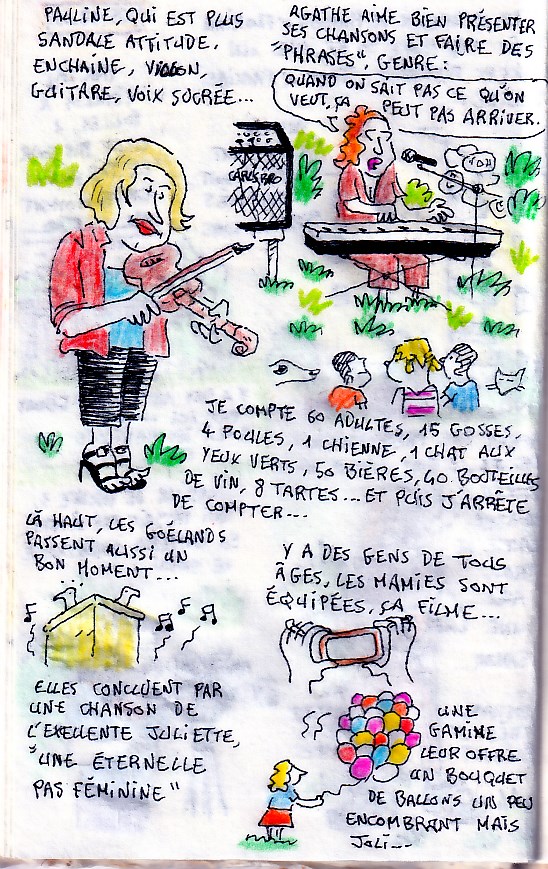 PAULINE, QUI EST PLUS
SANDALE ATTITUDE,
ENCHAINE, VIOLON,
GUITARE, VOIX SUCRÉE...
AGATHE AIME BIEN PRÉSENTER
SES CHANSONS ET FAIRE DES
"PHRASES", GENRE:
QUAND ON SAIT PAS CE QU'ON
VEUT, ÇA PEUT PAS ARRIVER.
CARLSBRO
JE COMPTE 60 ADULTES, 15 GOSSES,
4 POULES, 1 CHIENNE, 1 CHAT AUX
YEUX VERTS, 50 BIÈRES, 40 BOUTEILLES
DE VIN, 8 TARTES... ET PUIS J'ARRÊTE
DE COMPTER...
LÀ HAUT, LES GOÉLANDS
PASSENT AUSSI UN
BON MOMENT...
Y A DES GENS DE TOUS
ÂGES, LES MAMIES SONT
ÉQUIPÉES, ÇA FILME...
ELLES CONCLUENT PAR
UNE CHANSON DE
L'EXELLENTE JULIETTE,
"UNE ÉTERNELLE
PAS FÉMININE"
UNE
GAMINE
LEUR OFFRE
UN BOUQUET
DE BALLONS UN PEU
ENCOMBRANT MAIS
JOLI...